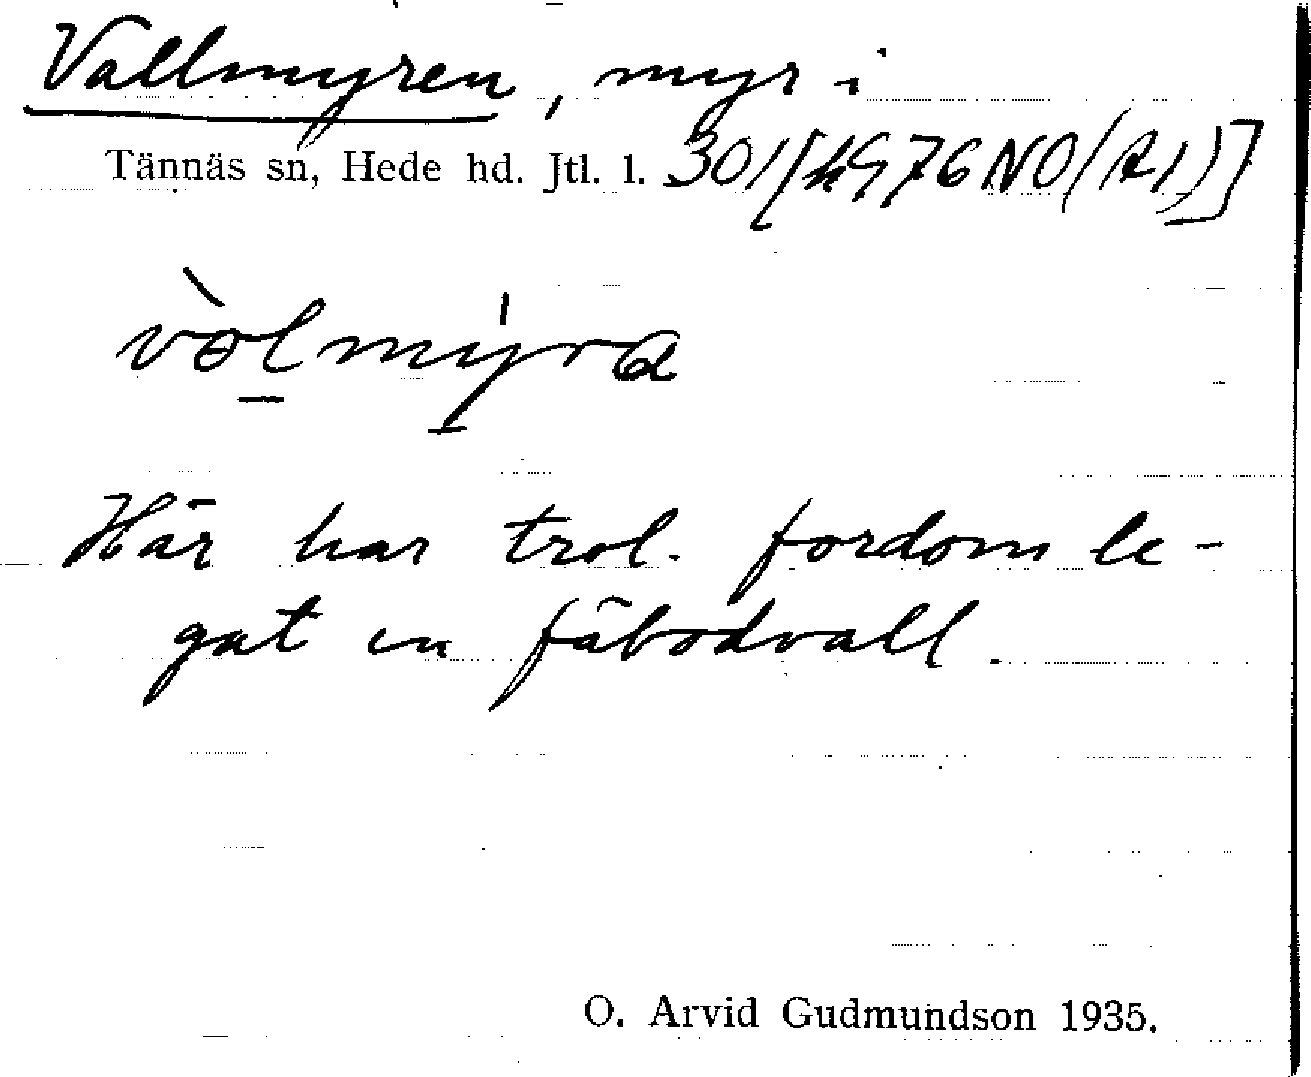 Vallmyren, myr i
Tännäs sn, Hede hd. Jtl. l. 301/[h976NO(A1)]
vòlmýra
Här har trol. fordom le-
gat en fäbodvall.
O. Arvid Gudmundson 1935.